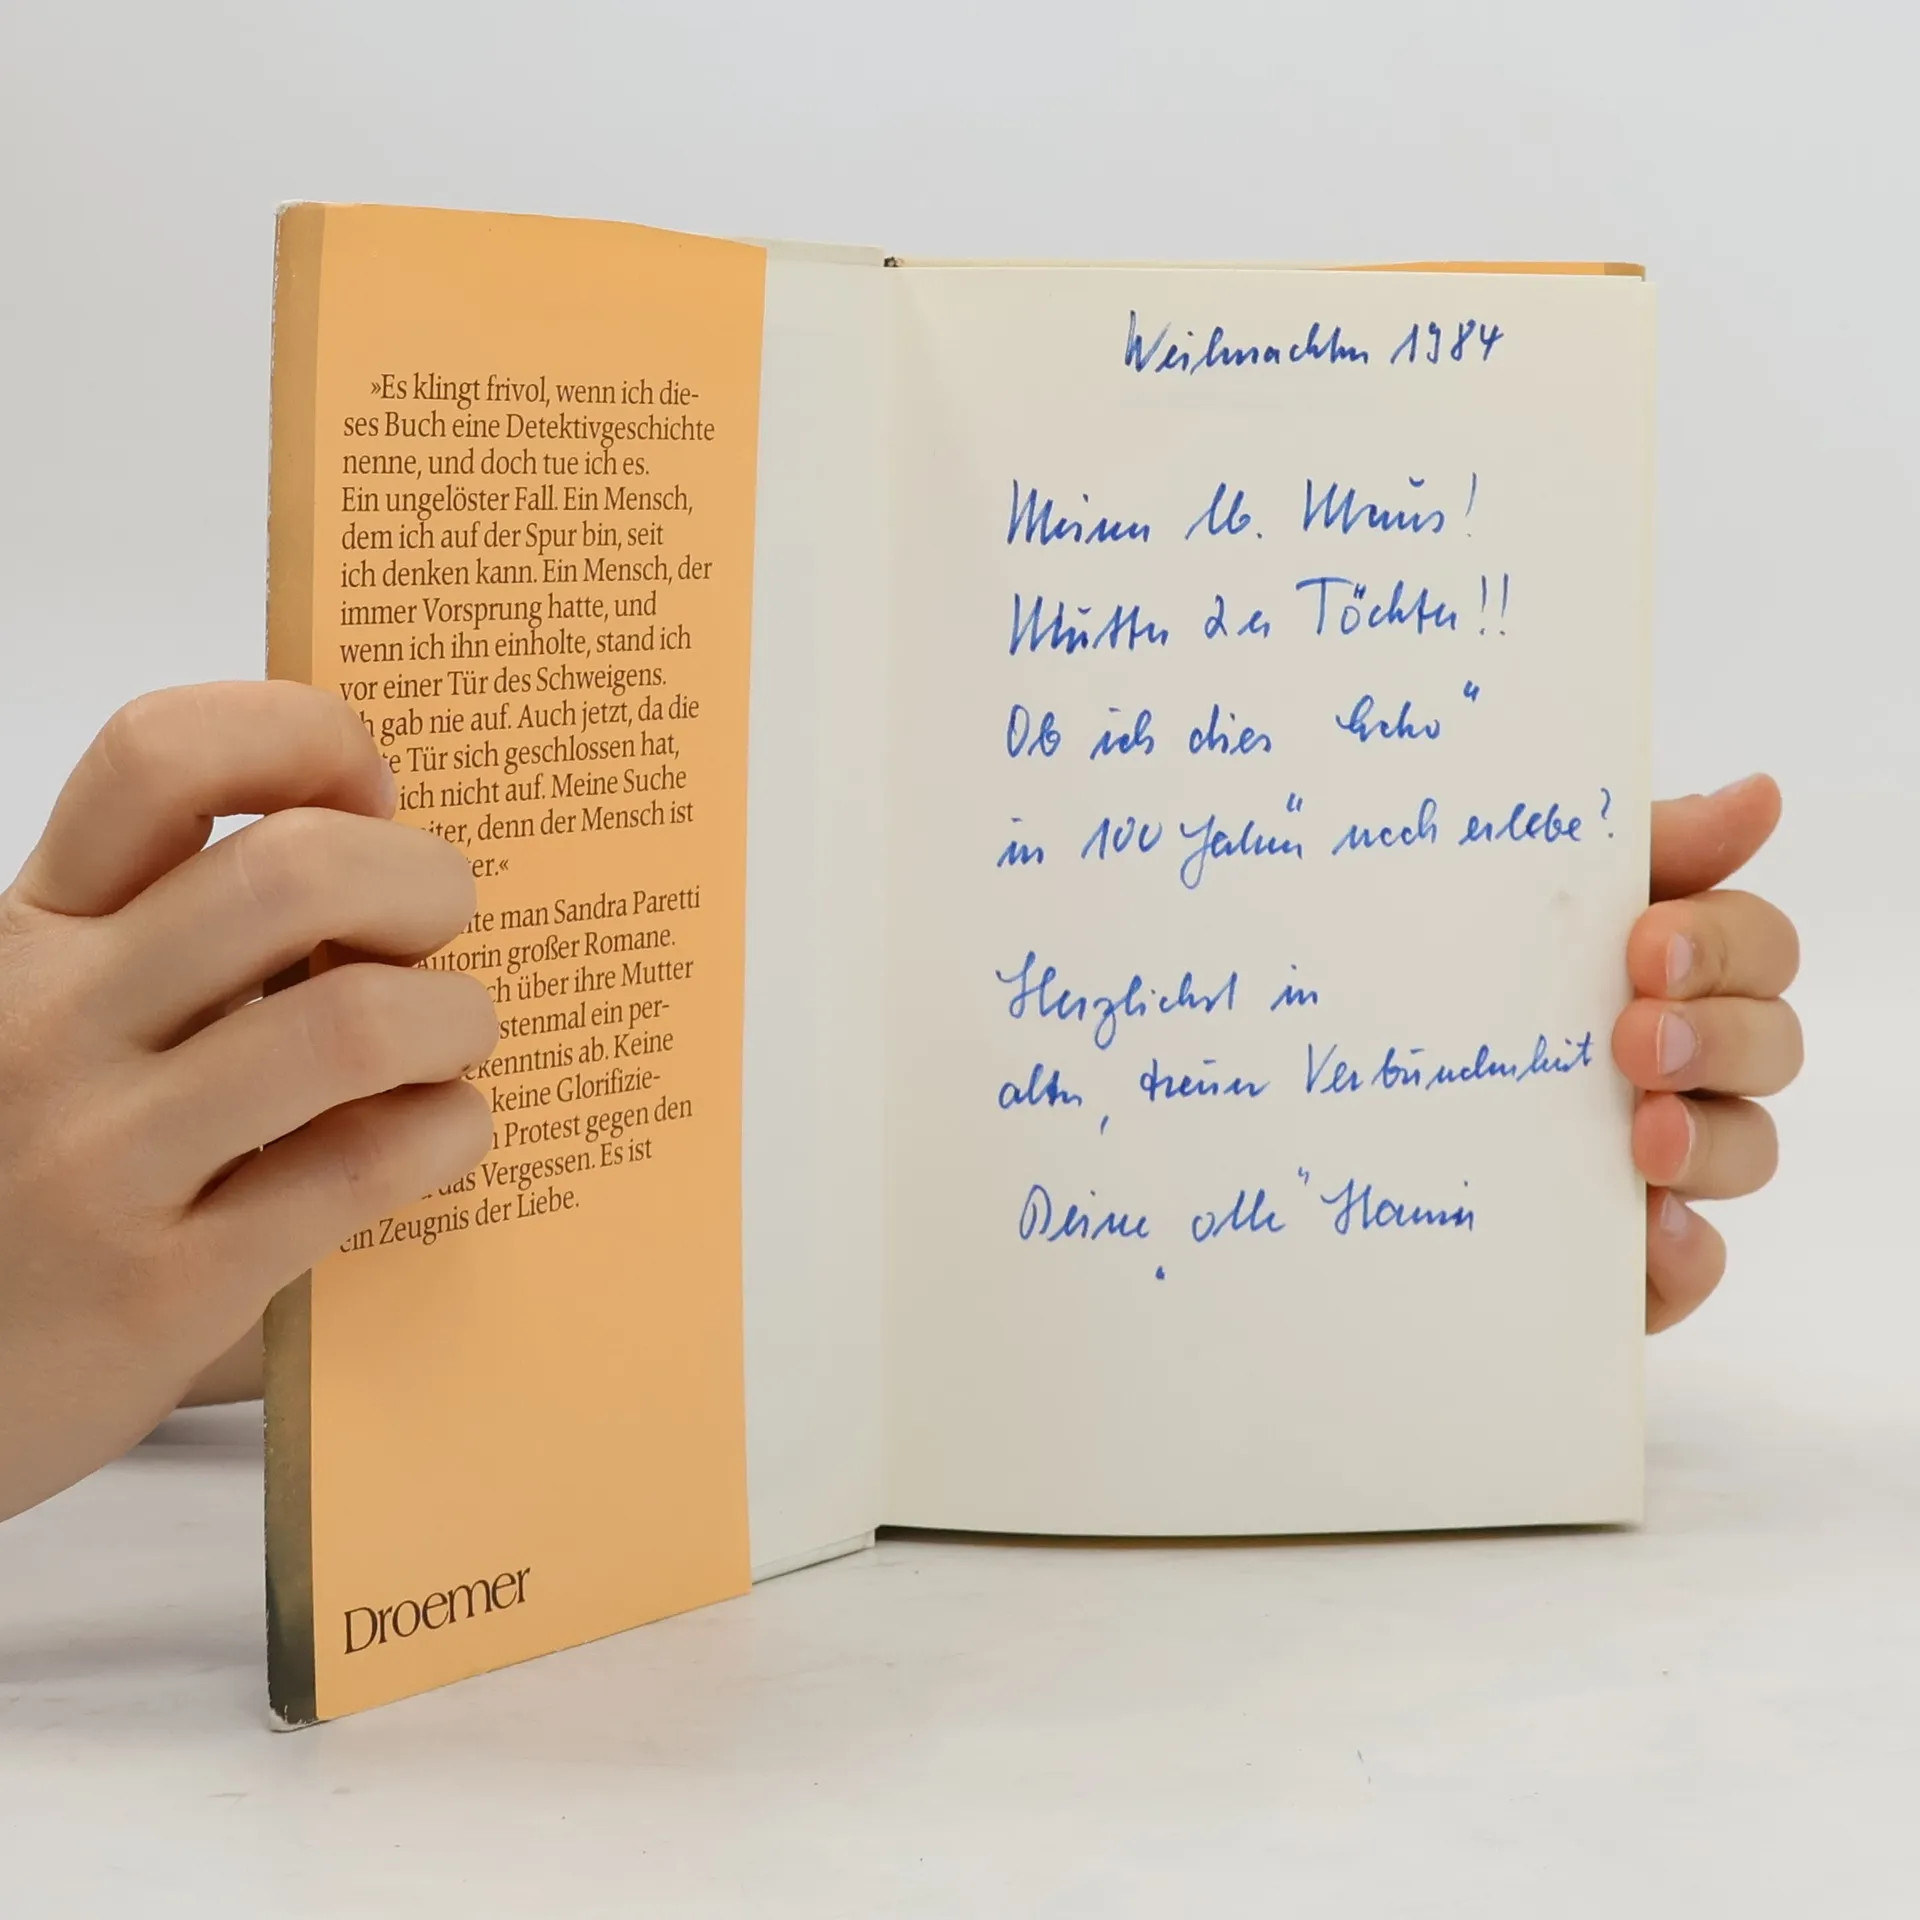 »Es klingt frivol, wenn ich die-
ses Buch eine Detektivgeschichte
nenne, und doch tue ich es.
Ein ungelöster Fall. Ein Mensch,
dem ich auf der Spur bin, seit
ich denken kann. Ein Mensch, der
immer Vorsprung hatte, und
wenn ich ihn einholte, stand ich
vor einer Tür des Schweigens.
gab nie auf. Auch jetzt, da die
Tür sich geschlossen hat,
ich nicht auf. Meine Suche
denn der Mensch ist
man Sandra Paretti
Autorin großer Romane.
über ihre Mutter
ein per-
ab. Keine
keine Glorifizie-
Protest gegen den
das Vergessen. Es ist
ein Zeugnis der Liebe.
Droemer
Weihnachten 1984
Meiner lb. Maus!
Mutter 2er Töchter!!
Ob ich dies Echo"
in 100 Jahren" noch erlebe?
Herzlichst in
alter, treuer Verbundenheit
Deine "olle" Hanni